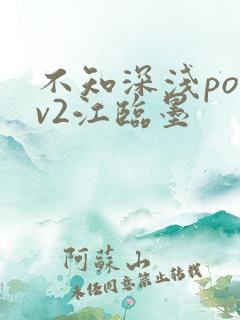 不知深浅po
v2江临墨
阿蘇山
未经同意禁止转载